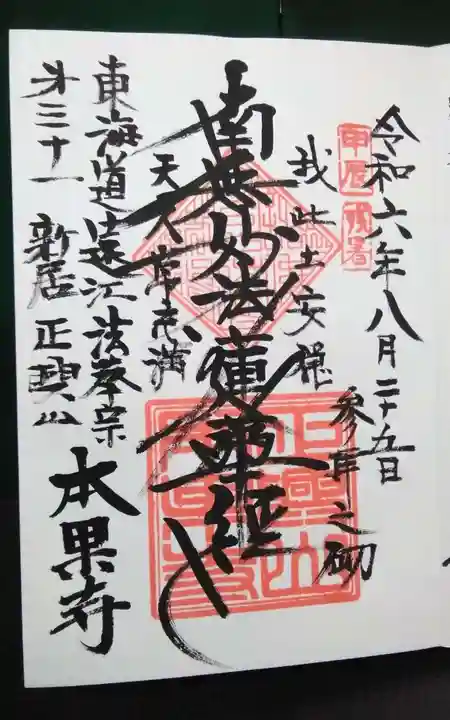 令和六年八月二十五日
甲辰 残暑
参拝之砌
我此土安穏
南無妙法蓮華経
天人常充満
東海道遠江法華宗
第三十一 新居 正興山
本果寺